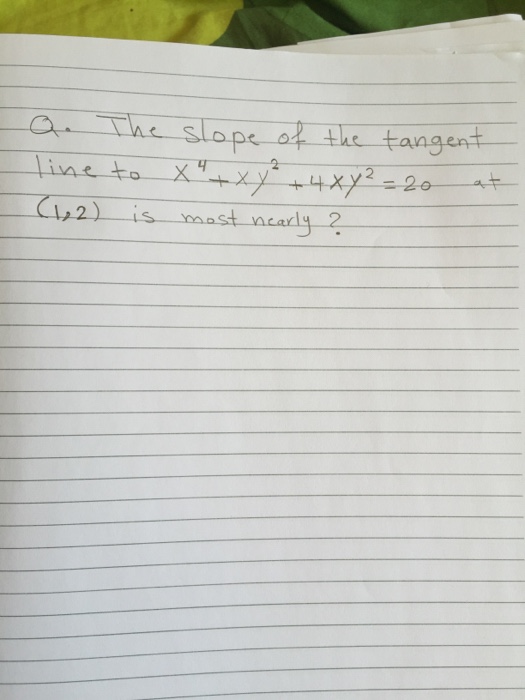 Q. The slope of the tangent
line to x⁴ + xy² + 4xy² = 20 at
(1,2) is most nearly ?